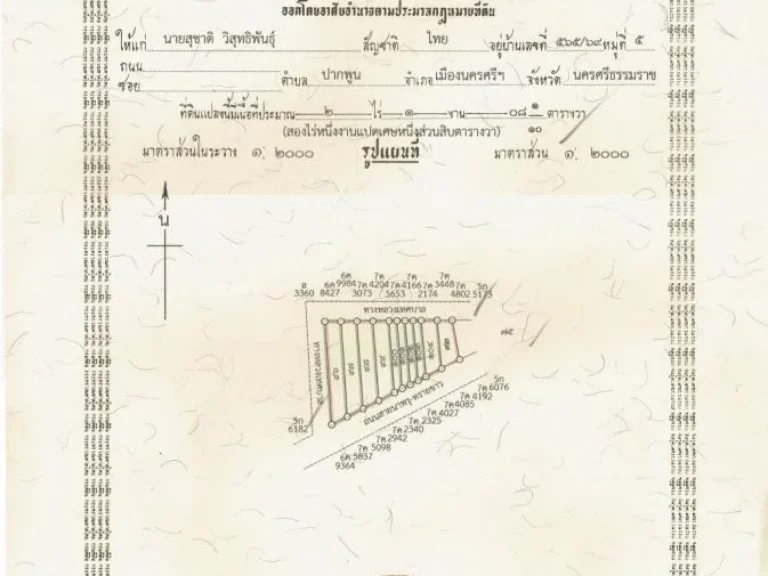 ออกโดยอาศัยอำนาจตามประมวลกฎหมายที่ดิน
ให้แก่ นายสุชาติ วิสุทธิพันธุ์ สัญชาติ ไทย อยู่บ้านเลขที่ ๕๖๕/๖๙ หมู่ที่ ๕
ถนน
ซอย ตำบล ปากพูน อำเภอ เมืองนครศรีฯ จังหวัด นครศรีธรรมราช
ที่ดินแปลงนี้มีเนื้อที่ประมาณ ๒ ไร่ ๑ งาน ๐๘ ๑/๑๐ ตารางวา
(สองไร่หนึ่งงานแปดเศษหนึ่งส่วนสิบตารางวา)
มาตราส่วนในระวาง ๑: ๒๐๐๐ รูปแผนที่ มาตราส่วน ๑: ๒๐๐๐
น
6ค 7ค 7ค 7ค
9984 4204 4166 3448
อ 6ค 7ค 7ค 7ค 7ค 5ก
3360 8427 3073 5653 2174 4802 5173
ทางหลวงเทศบาล
๗๕
ทางหลวงเทศบาล
ถนนสายนาพรุ-ทรายขาว
5ก
6182
7ค 6076
7ค 4192
7ค 4085
7ค 4027
7ค 2325
7ค 2340
7ค 2942
7ค 5098
6ค 5837
9364